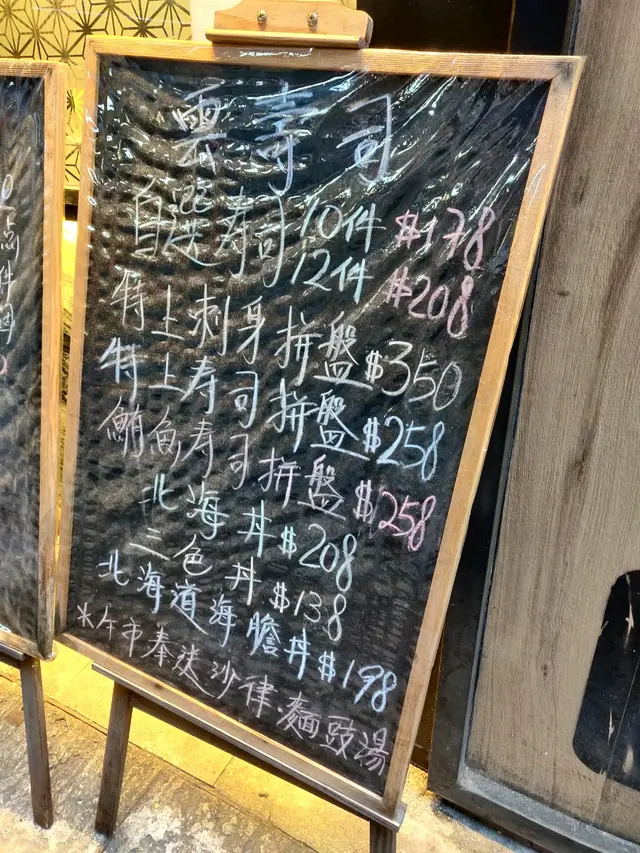 雲寿司
自選寿司10件 $178
12件 $208
特上刺身拼盤 $350
特上寿司拼盤 $258
鮪魚寿司拼盤 $258
北海丼 $208
三色丼 $138
北海道海膽丼 $198
*午市奉送沙律.麵豉湯